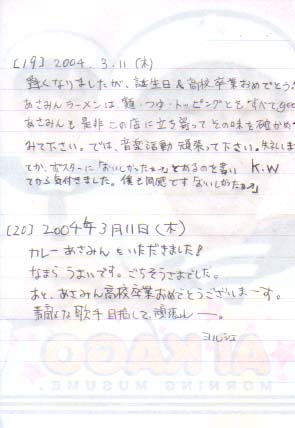 [19] 2004.3.11(木)
遅くなりましたが、誕生日&高校卒業おめでとう
あさみんラーメンは、麺・つゆ・トッピングともすべてgoo
あさみんも是非この店に立ち寄ってその味を確かめ
みて下さい。では、音楽活動 頑張って下さい。
てか、ポスターに「おいしかったぁ〜」とあるのを書い K.W
てから気付きました。僕も同感です「おいしかたぁ〜」
[20] 2004年3月11日(木)
カレーあさみんをいただきました!
なまらうまいです。ごちそうさまでした。
あと、あさみん高校卒業おめでとうございまーす。
素敵な歌手目指して、頑張れー。
ヨルシエ
AI KAGO
MORNING MUSUME.